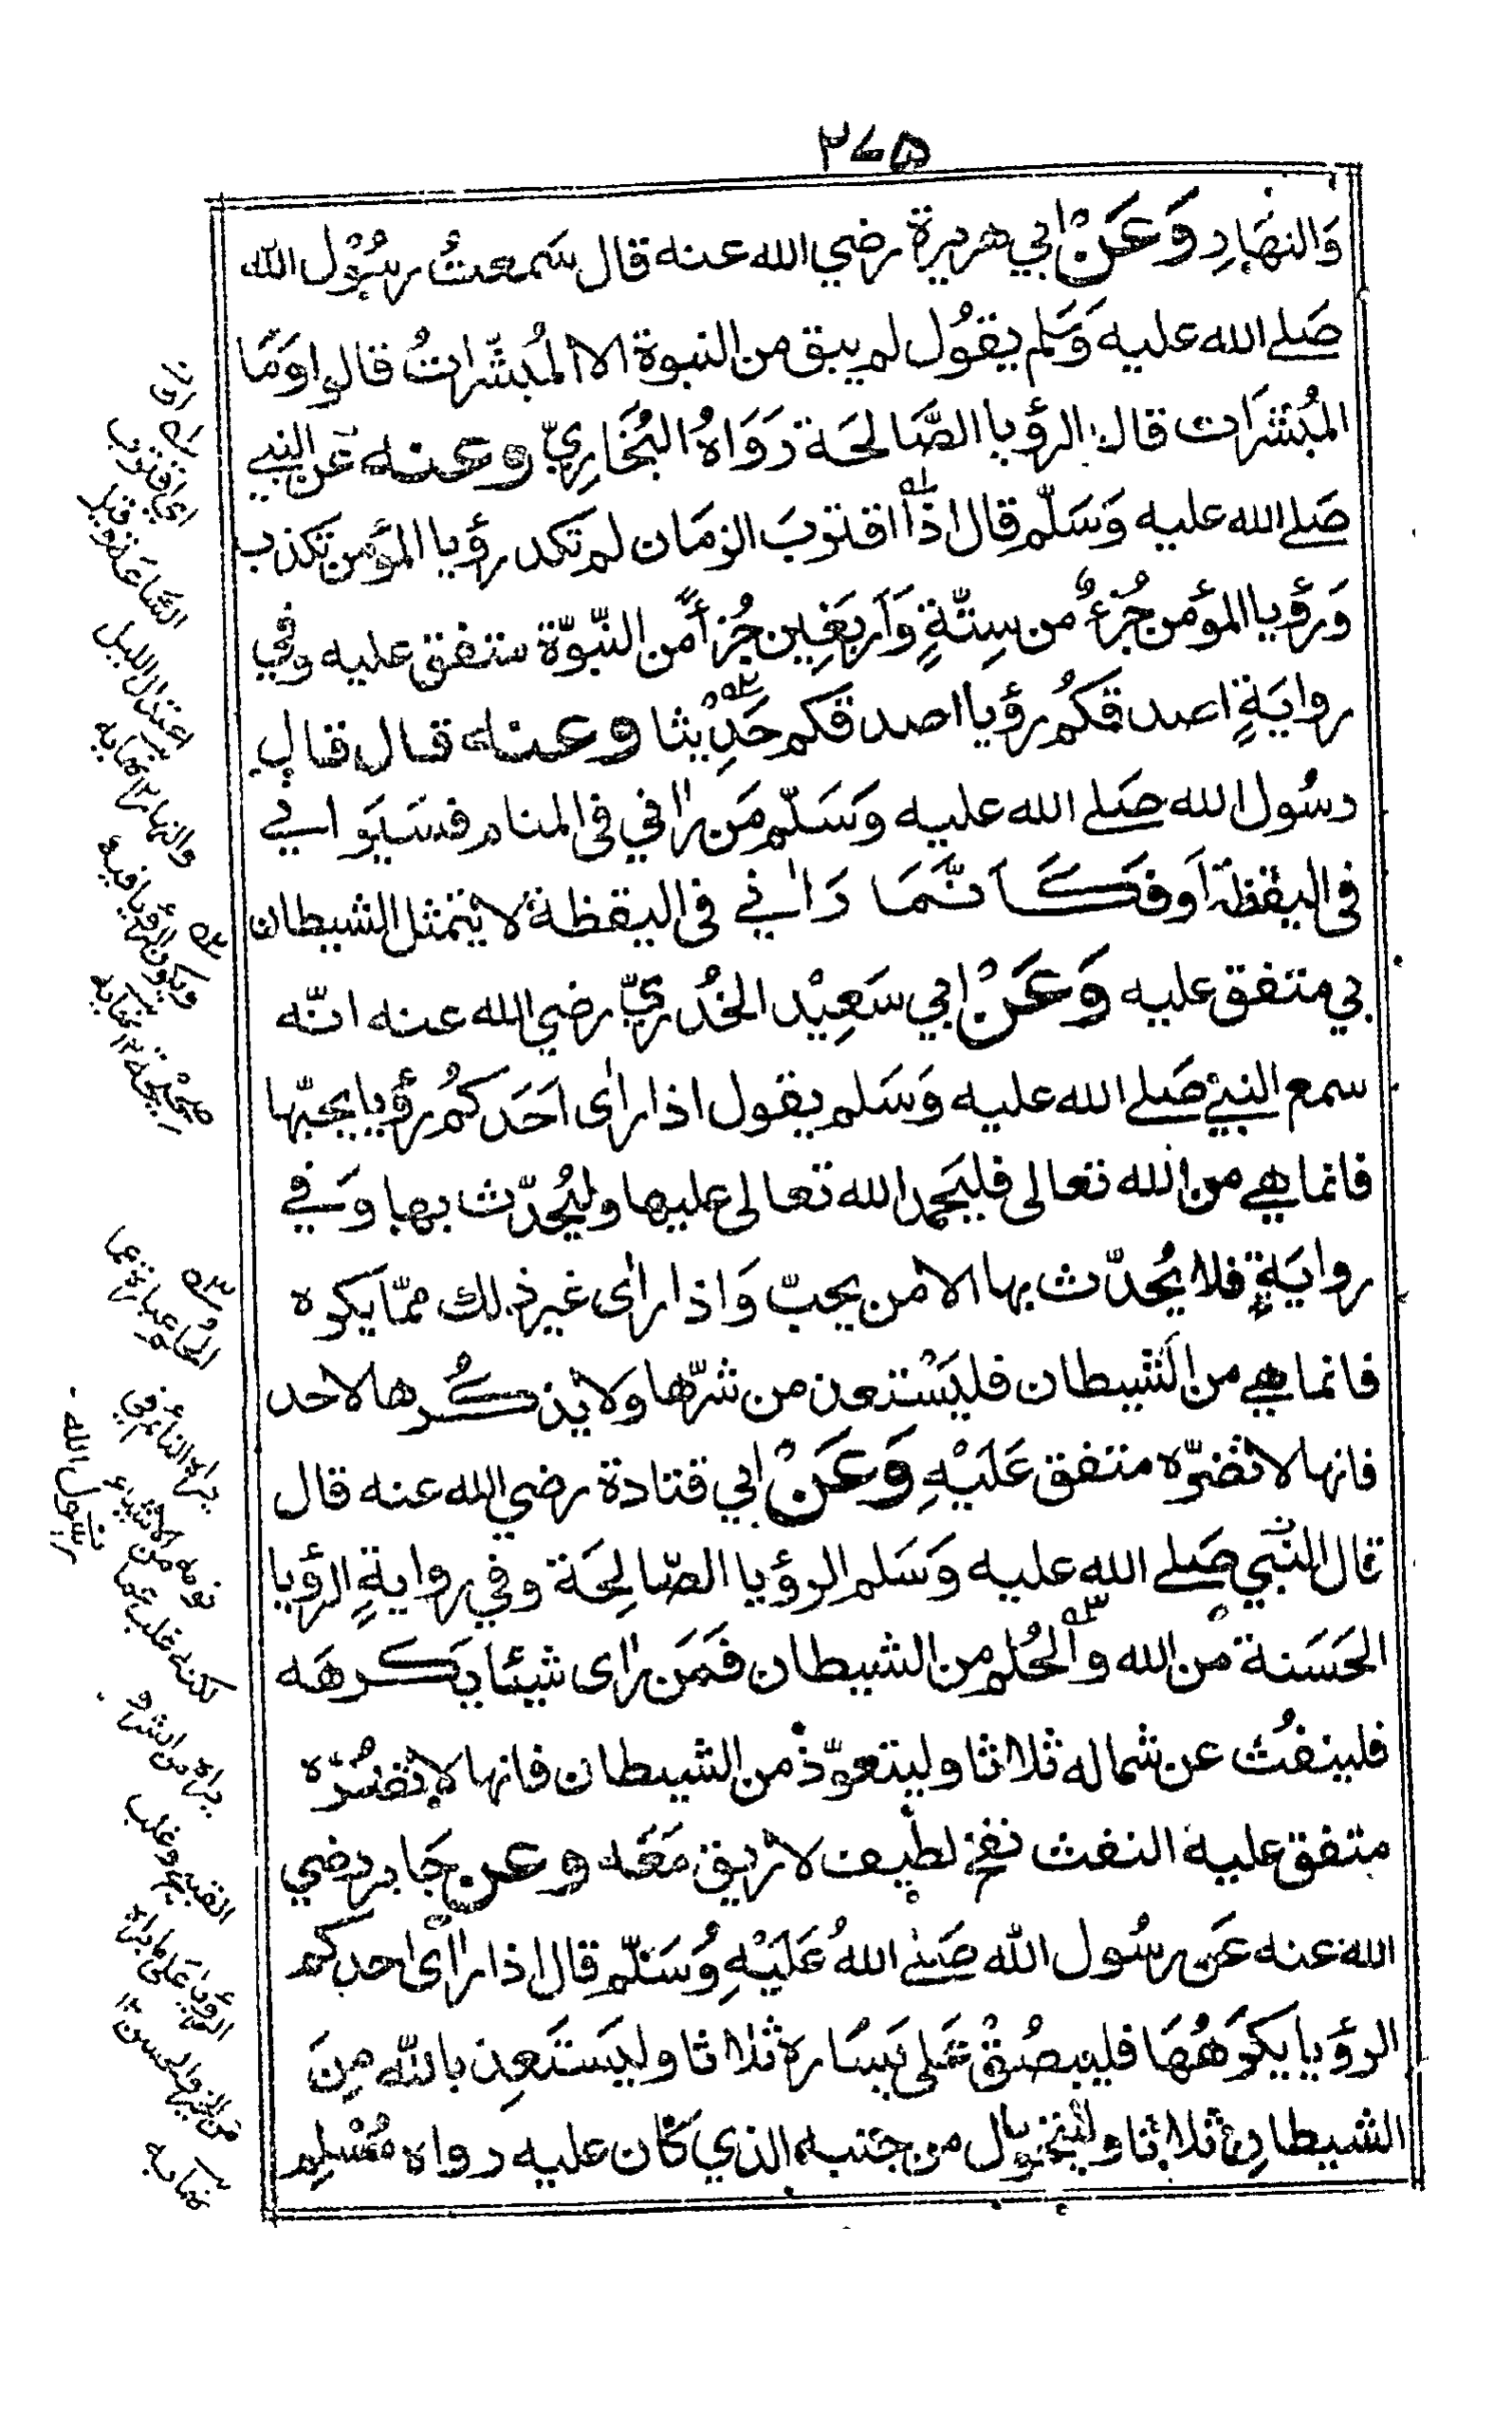 ٢٧٥
وَالنهَارِ وَعَنْ ابي هريرة رضي الله عنه قال سَمعتُ رسُوْل الله
صَلے الله عليه وَسَلم يقُول لم يبق من النبوة الا المُبشّراتُ قالوا وَمَا
المُبشرَات قال الرؤيا الصَّالحَة رَوَاهُ البُخَارِيّ وعنه عَن النبي
صَلے الله عليه وَسَلّم قال اذا اقتربَ الزمَان لم تكد رؤيا المؤمن تكذب
وَرؤيا المؤمن جُزءٌ من سِتّةٍ وَاَربَعِين جُزأً من النّبوّة متفق عليه وفي
روايَةٍ اصدقكُم رؤيا اصدقكم حَدِيْثا وعنه قال قال
رسُول الله صَلے الله عليه وَسَلّم مَن رآني فى المنام فسَيَراني
فى اليقظة اَوفكَاَنَّمَا رَاٰني فى اليقظة لا يتمثل الشيطان
بي متفق عليه وَعَنْ ابي سَعِيْد الخُدريّ رضي الله عنه انّه
سمع النبيّ صَلے الله عليه وَسَلم يقول اذا راٰى احَدكُم رؤيا يحبّها
فانما هي من الله تعالى فليَحمد الله تعالى عليها وليُحدّث بها وَفي
روايَةٍ فلا يُحدّث بها الا من يحبّ وَاذا راٰى غير ذلك ممّا يكره
فانما هي من الشيطان فليَسْتعذ من شرّها ولا يذكُرها لاحد
فانها لا تضرّه متفق عَلَيْهِ وَعَنْ ابي قتادة رضي الله عنه قال
قال النَّبي صَلے الله عليه وَسَلم الرؤيا الصّالِحَة وفي روايةٍ الرؤيا
الحَسَنة من الله والحُلم من الشيطان فَمَن راٰى شيئا يكرهَه
فلينفُث عن شماله ثلاثا وليتعوّذ من الشيطان فانها لا تضُرّه
متفق عليه النفث نفخ لطيف لا ريق مَعَه وعن جَابر رضي
الله عنه عَن رسُول الله صَلے اللهُ عَلَيْهِ وَسَلّم قال اذا راٰى احدكم
الرؤيا يكرَهُهَا فليبصُقْ عَلى يَسَاره ثلاثا وليَستَعِذ بالله مِنَ
الشيطانِ ثلاثا وليتحَوّل من جنبه الذي كان عليه رواه مُسْلم
اي اقترب
الساعة
اعتدال الليل
والنهار
ويكون الرؤيا فيه
صَحِيْحَة
رسول الله